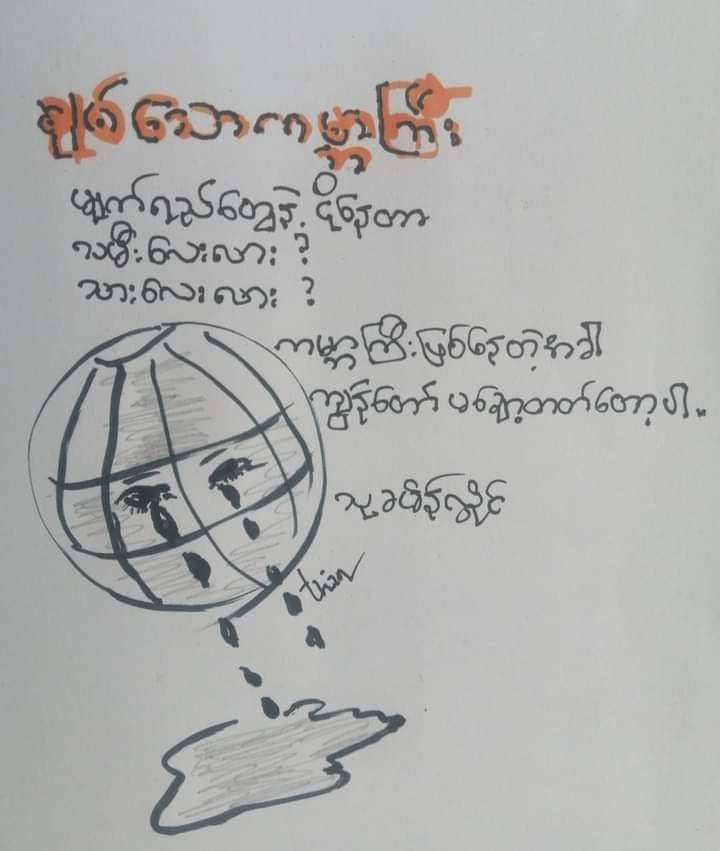 ချစ်သောကမ္ဘာကြီး
မျက်ရည်တွေနဲ့ ငိုနေတာ
သမီးလေးလား ?
သားလေးလား ?
ကမ္ဘာကြီးဖြစ်နေတဲ့အခါ
ကျွန်တော် မချော့တတ်တော့ပါ ..
သူခထိန်လှိုင်
thin